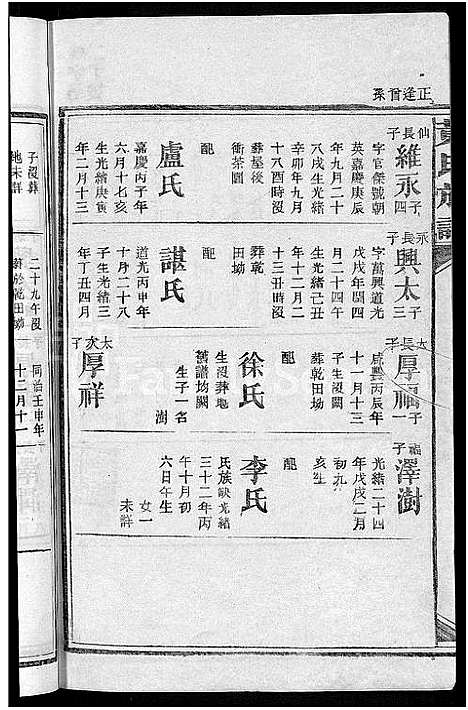 正逢曾孫
黃氏族譜
仙長子
維永
子四
字官保號朝
英嘉慶庚辰
年九月二十
八戌生光緒
辛卯年九月
十八酉時沒
葬屋後
衝茶園
配
盧氏
嘉慶丙子年
六月十七亥
生光緒庚寅
年二月十三
永長子
興太
子三
字萬興道光
戊戌年閏四
月二十四午
生光緒己丑
十三丑時沒
葬乾
田坳
配
諶氏
道光丙申年
十月二十八
子生光緒三
年丁丑四月
太長子
厚福
子一
咸豐丙辰年
十一月十三
子生沒闕
葬乾田坳
配
徐氏
生沒葬地
舊譜均闕
生子一名
澍
太次子
厚祥
福子
澤澍
光緒二十四
年戊戌二月
初九
亥生
配
李氏
氏族缺光緒
三十二年丙
午十月初
六日午生
女一
未詳
子沒葬
地未詳
二十九午沒
葬於乾田坳
同治壬申年
十二月十一